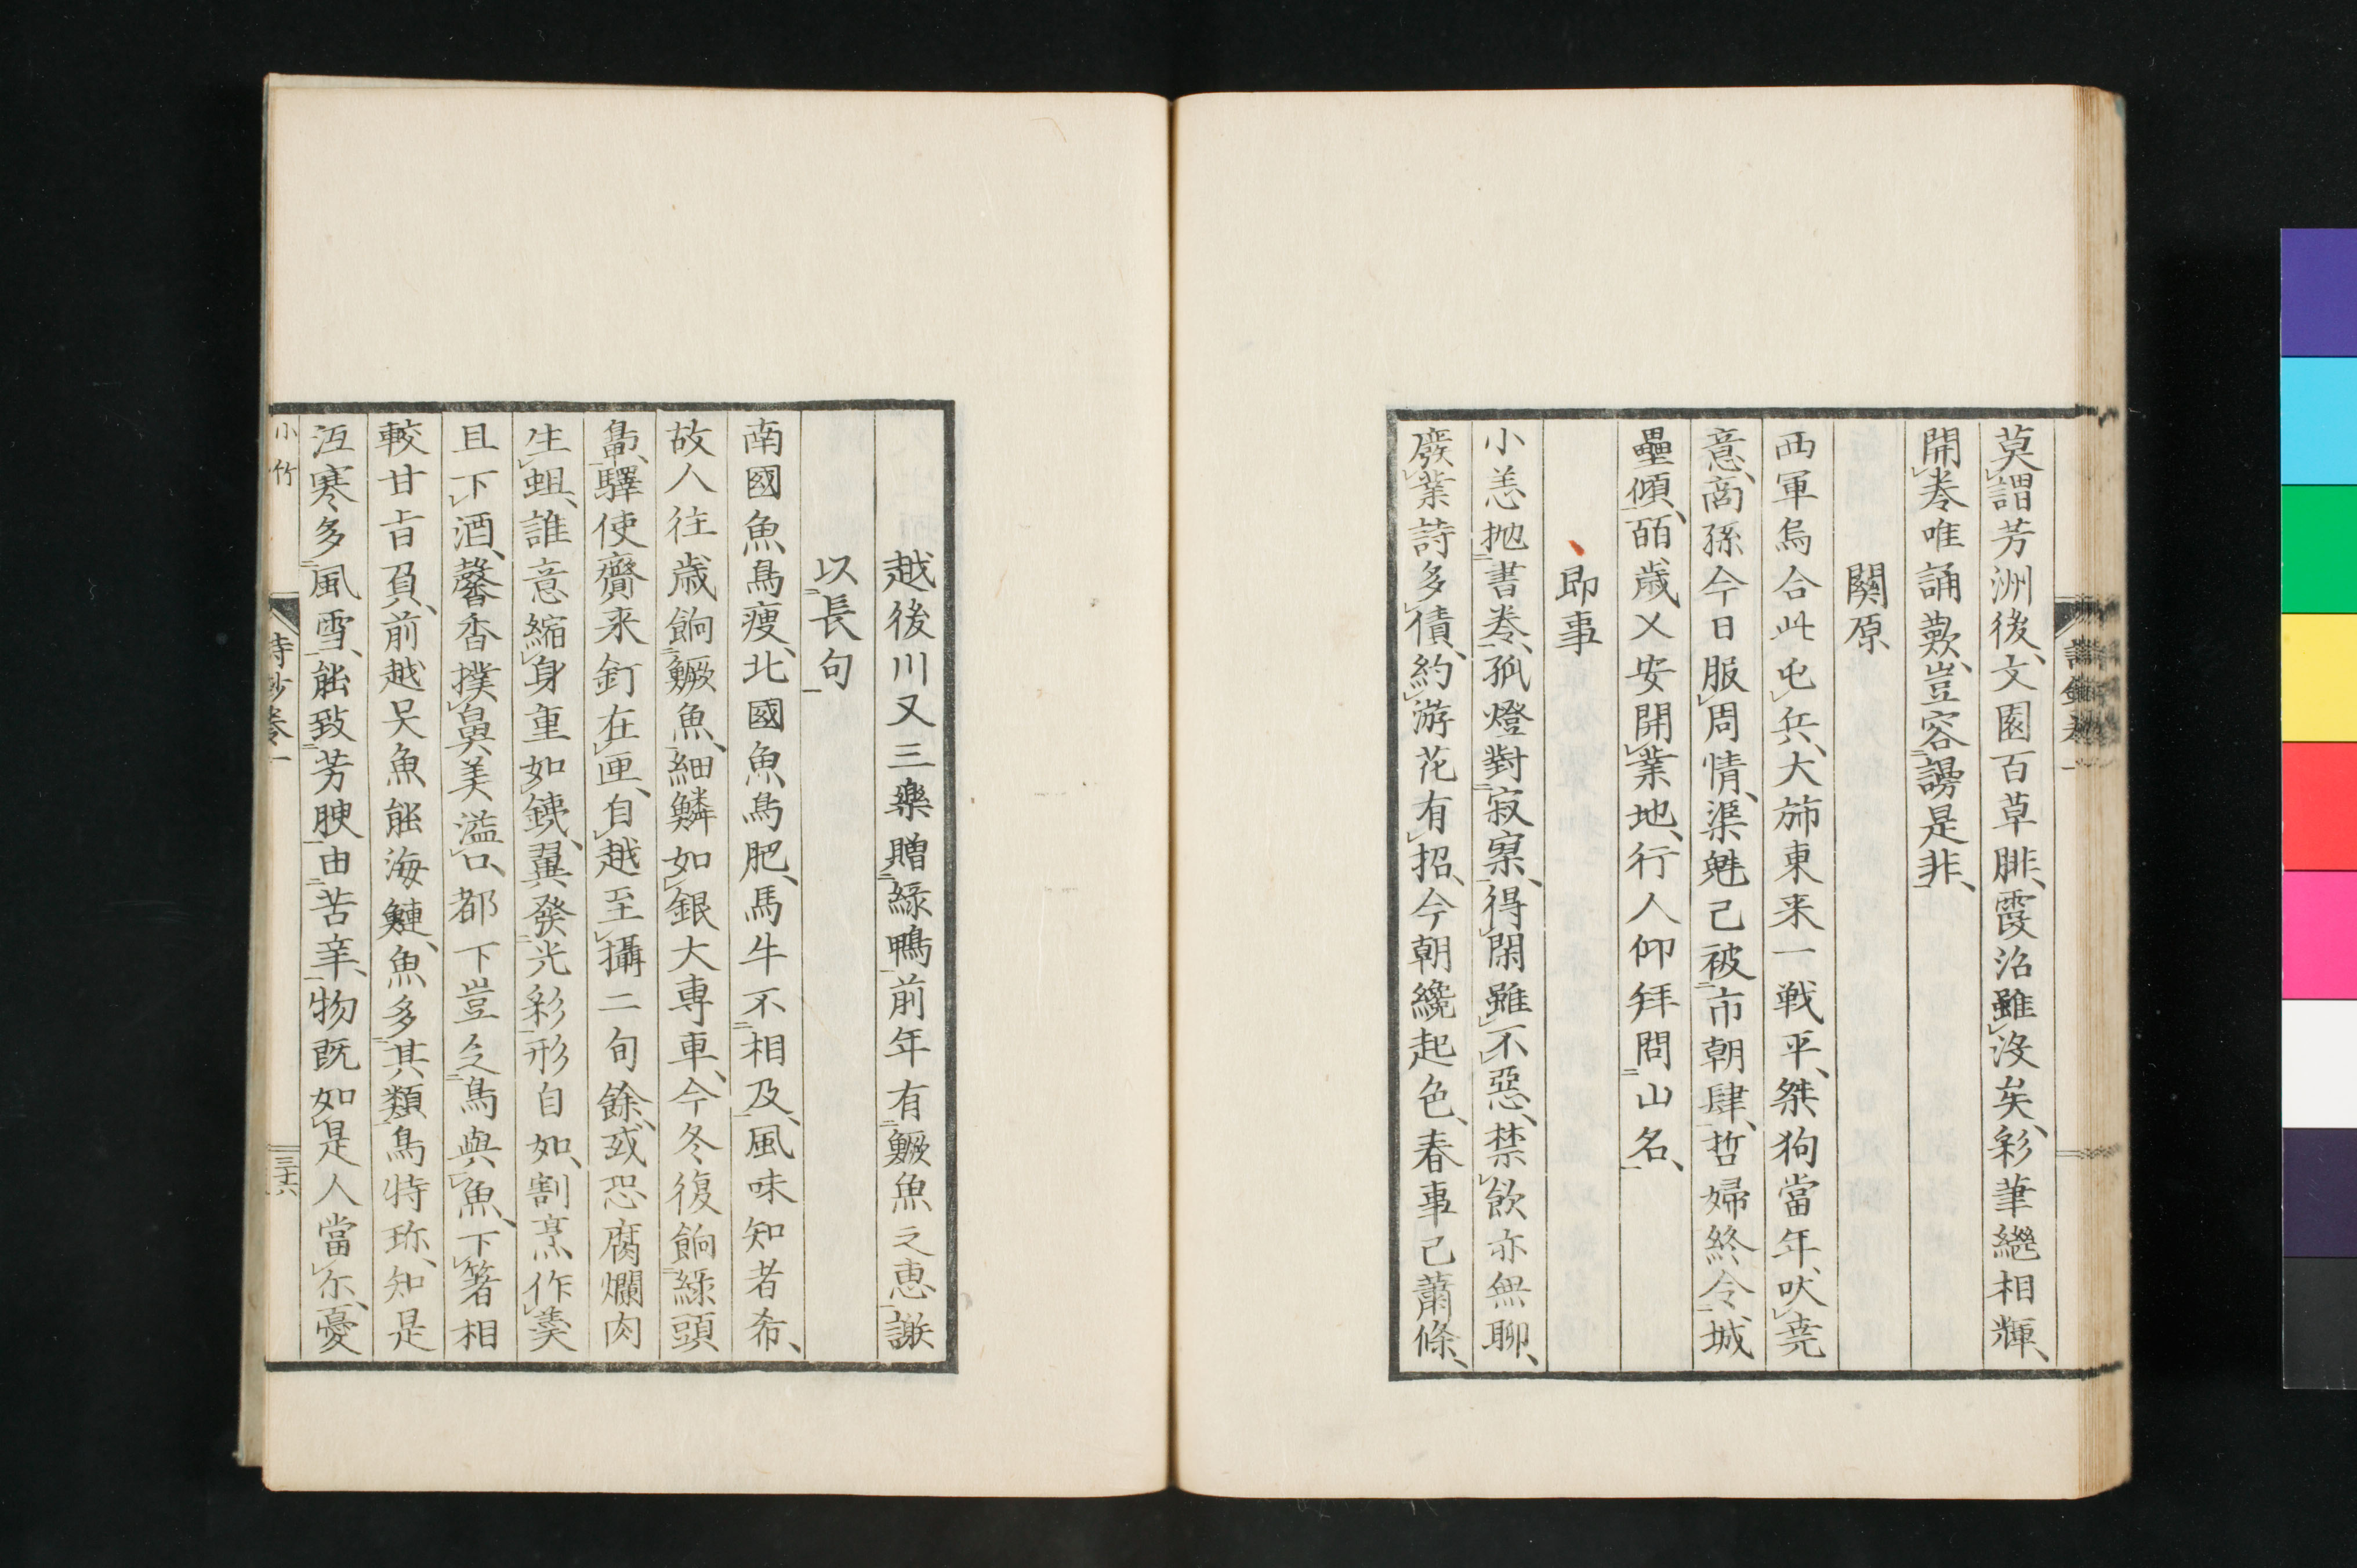 莫謂芳洲後、文園百草腓、霞沼雖沒矣、彩筆繼相輝、
開卷唯誦歎、豈容謗是非、
關原
西軍烏合此屯兵、大斾東来一戦平、桀狗當年吠堯
意、商孫今日服周情、渠魁已被市朝肆、哲婦終令城
壘傾、百歳乂安開業地、行人仰拜問山名、
即事
小恙抛書卷、孤燈對寂寞、得閑雖不惡、禁飲亦無聊、
廢業詩多債、約游花有招、今朝纔起色、春事已蕭條、
越後川又三樂贈綠鴨前年有鱖魚之惠謝
以長句
南國魚鳥瘦、北國魚鳥肥、馬牛不相及、風味知者希、
故人往歳餉鱖魚、細鱗如銀大專車、今冬復餉綠頭
鳧、驛使齎来釘在匣、自越至攝二旬餘、或恐腐爛肉
生蛆、誰意縮身重如鐵、翼發光彩形自如、割烹作羹
且下酒、馨香撲鼻美溢口、都下豈乏鳥與魚、下箸相
較甘旨負、前越呉魚能海鰱、魚多其類鳥特珎、知是
沍寒多風雪、能致芳腴由苦辛、物既如是人當尓、憂
小竹
詩鈔卷一
三十六